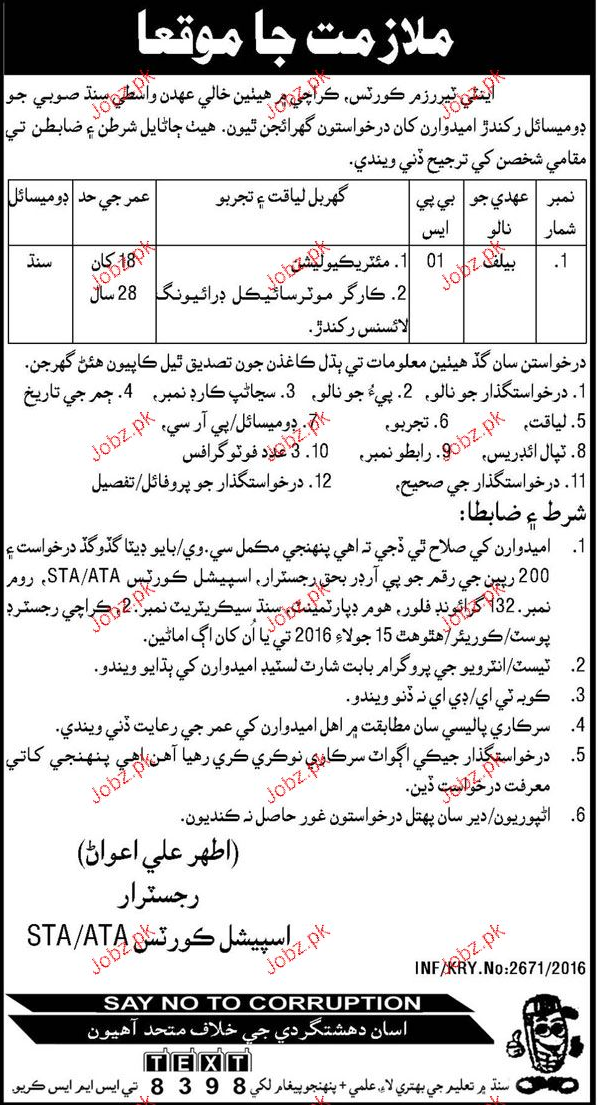 ملازمت جا موقعا
اينٽي ٽيررزم ڪورٽس، ڪراچي ۾ هيٺين خالي عهدن واسطي سنڌ صوبي جو
ڊوميسائل رکندڙ اميدوارن کان درخواستون گهرائجن ٿيون. هيٺ ڄاڻايل شرطن ۽ ضابطن تي
مقامي شخصن کي ترجيح ڏني ويندي.
نمبر شمار | عهدي جو نالو | بي پي ايس | گهربل لياقت ۽ تجربو | عمر جي حد | ڊوميسائل
1. | بيلف | 01 | 1. مئٽريڪيوليشن | 18 کان | سنڌ
2. ڪارگر موٽرسائيڪل ڊرائيونگ | 28 سال
لائسنس رکندڙ.
درخواستن سان گڏ هيٺين معلومات تي ٻڌل ڪاغذن جون تصديق ٿيل ڪاپيون هئڻ گهرجن.
1. درخواستگذار جو نالو، 2. پيءُ جو نالو، 3. سڃاڻپ ڪارڊ نمبر، 4. ڄم جي تاريخ
5. لياقت، 6. تجربو، 7. ڊوميسائل/پي آر سي،
8. ٽپال ائڊريس، 9. رابطو نمبر، 10. 3 عدد فوٽوگرافس
11. درخواستگذار جي صحيح، 12. درخواستگذار جو پروفائل/تفصيل
شرط ۽ ضابطا:
1. اميدوارن کي صلاح ٿي ڏجي ته اهي پنهنجي مڪمل سي.وي/بايو ڊيٽا گڏوگڏ درخواست ۽
200 رپين جي رقم جو پي آرڊر بحق رجسٽرار، اسپيشل ڪورٽس STA/ATA، روم
نمبر.132 گرائونڊ فلور، هوم ڊپارٽمينٽ، سنڌ سيڪريٽريٽ نمبر.2، ڪراچي رجسٽرڊ
پوسٽ/ڪوريئر/هٿوهٿ 15 جولاءِ 2016 تي يا اُن کان اڳ اماڻين.
2. ٽيسٽ/انٽرويو جي پروگرام بابت شارٽ لسٽيڊ اميدوارن کي ٻڌايو ويندو.
3. ڪوبه ٽي اي/ڊي اي نه ڏنو ويندو.
4. سرڪاري پاليسي سان مطابقت ۾ اهل اميدوارن کي عمر جي رعايت ڏني ويندي.
5. درخواستگذار جيڪي اڳواٽ سرڪاري نوڪري ڪري رهيا آهن اهي پنهنجي کاتي
معرفت درخواست ڏين.
6. اڻپوريون/دير سان پهتل درخواستون غور حاصل نه ڪنديون.
(اطهر علي اعواڻ)
رجسٽرار
اسپيشل ڪورٽس STA/ATA
INF/KRY.No:2671/2016
SAY NO TO CORRUPTION
اسان دهشتگردي جي خلاف متحد آهيون
TEXT
سنڌ ۾ تعليم جي بهتري لاءِ، علمي + پنهنجو پيغام لکي 8398 تي ايس ايم ايس ڪريو.
Jobz.pk